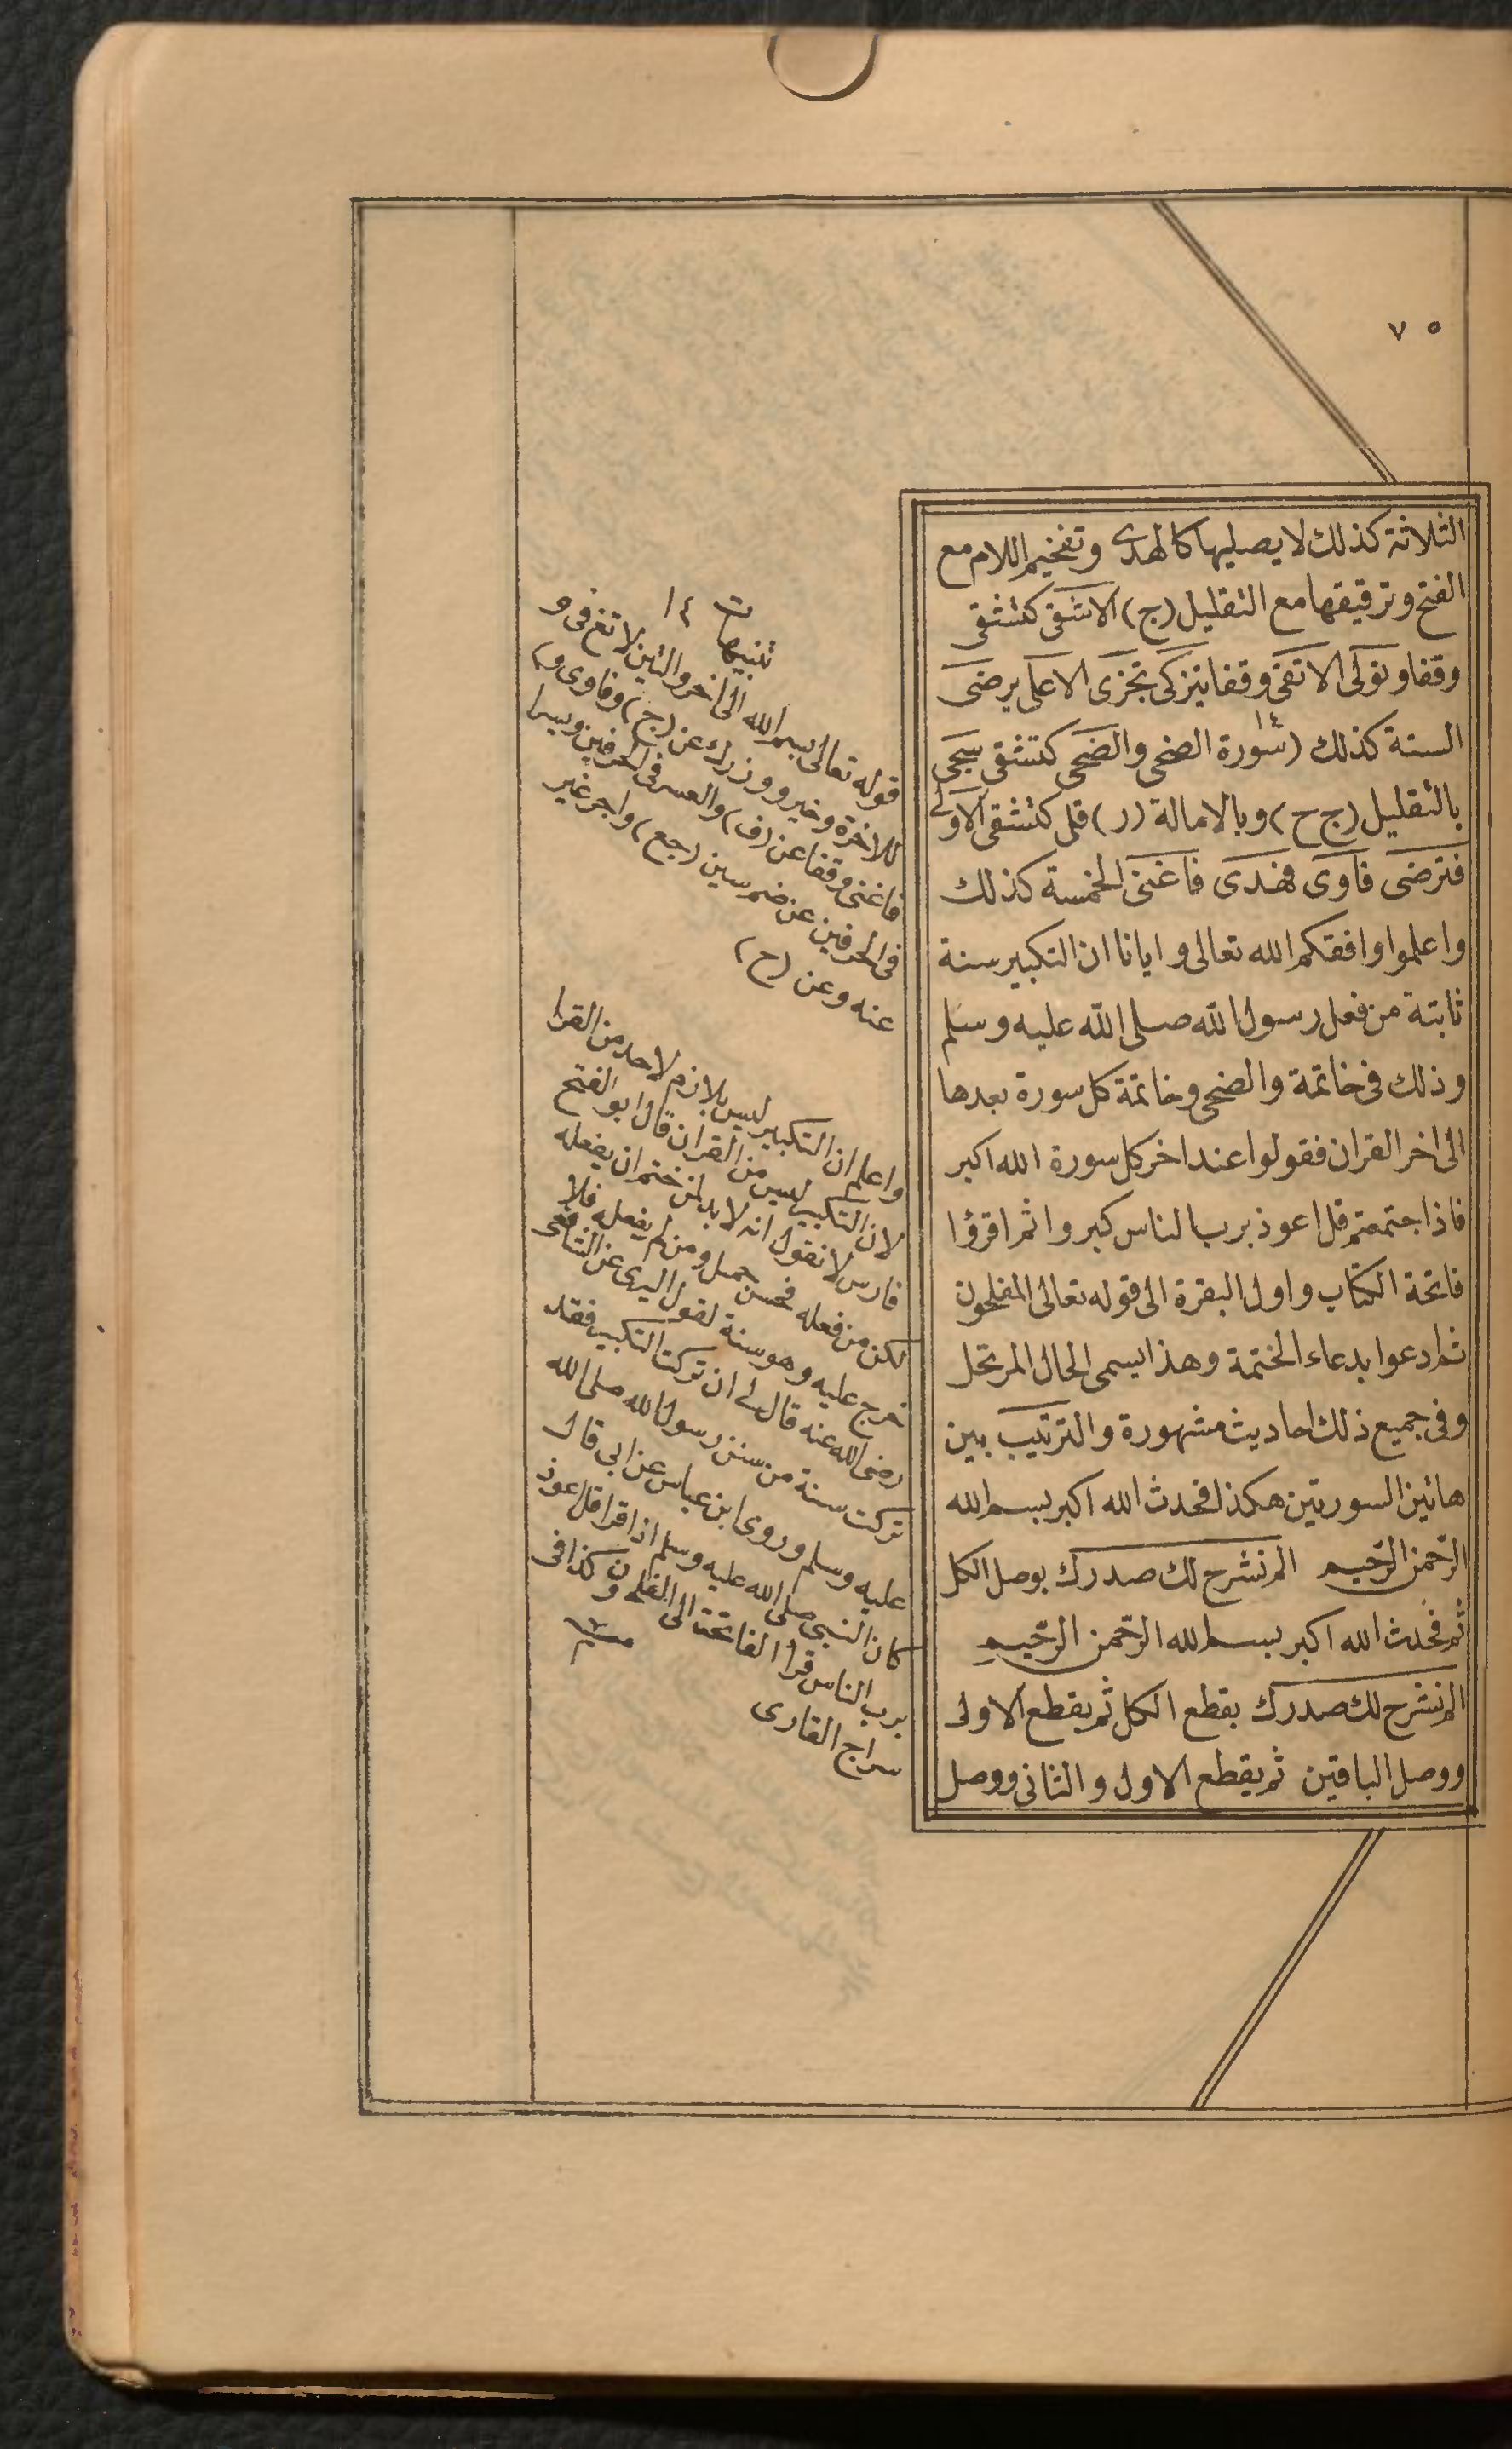 ٧٥
الثلاثة كذلك لا يصليها كالهدى وتفخيم اللام مع
الفتح وترقيقها مع التقليل (ج) الاشقى كتشقى
وقفا وتولى الاتقى وقفا يتزكى تجزى الاعلى يرضى
الستة كذلك (سورة الضحى والضحى كتشقى سجى
بالتقليل (ج ح) وبالامالة (ر) قلى كتشقى الاولى
فترضى فاوى فهدى فاغنى الخمسة كذلك
واعلموا وافقكم الله تعالى وايانا ان التكبير سنة
ثابتة من فعل رسول الله صلى الله عليه وسلم
وذلك فى خاتمة والضحى وخاتمة كل سورة بعدها
الى اخر القران فقولوا عند اخر كل سورة الله اكبر
فاذا ختمتم قل اعوذ برب الناس كبروا ثم اقرؤا
فاتحة الكتاب واول البقرة الى قوله تعالى المفلحون
ثم ادعوا بدعاء الختمة وهذا يسمى الحال المرتحل
وفى جميع ذلك احاديث مشهورة والترتيب بين
هاتين السورتين هكذا فحدث الله اكبر بسم الله
الرحمن الرحيم الم نشرح لك صدرك بوصل الكل
ثم فحدث الله اكبر بسم الله الرحمن الرحيم
الم نشرح لك صدرك بقطع الكل ثم يقطع الاولى
ووصل الباقين ثم يقطع الاول والثانى ووصل
تنبيهات ١٤
قوله تعالى بسم الله الى اخر والتين لا تغ فى و
للاخرة وخير ووزرك عن (ج) وفاوى و
فاغنى وقفا عن (ف) والعسر فى الحرفين ويسرا
فى الحرفين عن ضم سين (جع) واجر غير
عنه وعن (ح)
واعلم ان التكبير ليس بلازم لاحد من القرا
لان التكبير ليس من القران قال ابو الفتح
فارس لا نقول انه لا بد لمن ختم ان يفعله
لكن من فعله فحسن جميل ومن لم يفعله فلا
خرج عليه وهو سنة لقول البزى عن الشافعى
رضى الله عنه قال لى ان تركت التكبير فقد
تركت سنة من سنن رسول الله صلى الله
عليه وسلم وروى ابن عباس عن ابى قال
كان النبى صلى الله عليه وسلم اذا قرا قل اعوذ
برب الناس قرا الفاتحة الى المفلحون وكذا فى
سراج القارى